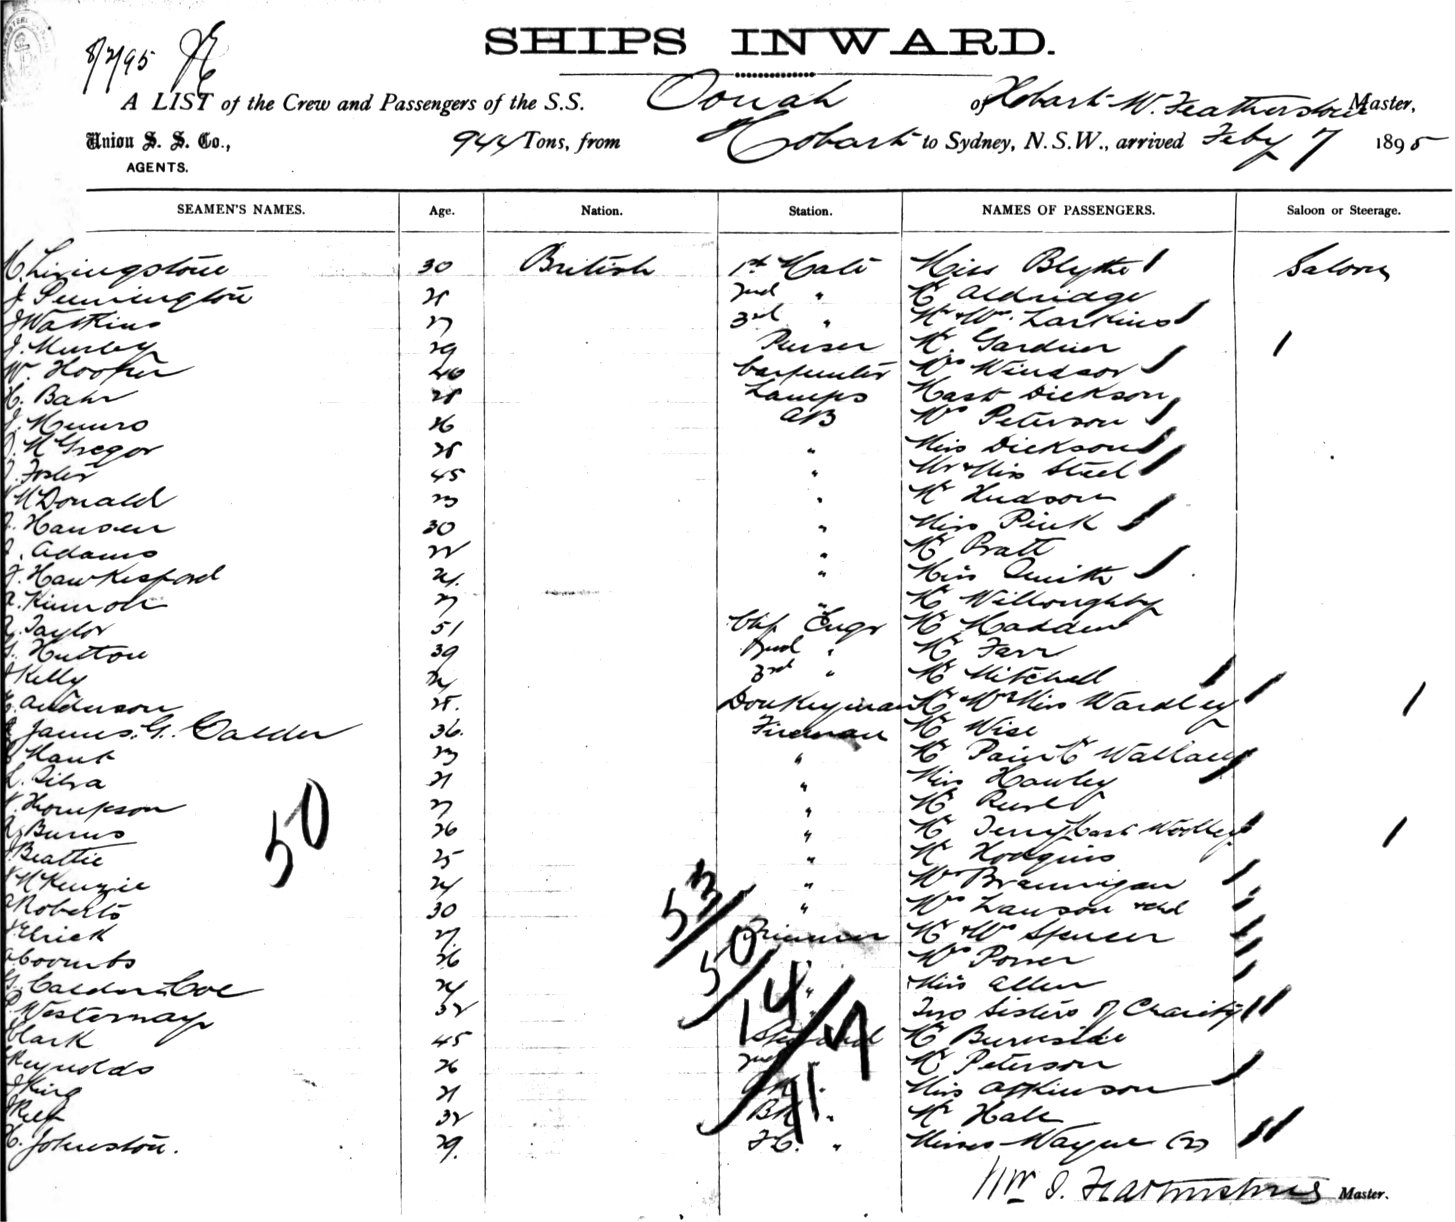 8/2/95
SHIPS INWARD.
A LIST of the Crew and Passengers of the S.S. Oonah of Hobart W. Featherstone Master,
Union S. S. Co., AGENTS. 944 Tons, from Hobart to Sydney, N.S.W., arrived Feby 7 1895
SEAMEN'S NAMES. Age. Nation. Station. NAMES OF PASSENGERS. Saloon or Steerage.
Livingstone 30 British 1st Mate Miss Blythe Saloon
J Pennington 28 2nd " Mr Aldridge
J Watkins 27 3rd " Mr & Mrs Larkins
J. Murley 29 Purser Mr. Gardner
W. Hooker 46 Carpenter Mrs Windsor
Bahr 28 Lamps Mast Dickson
J. Munro 26 AB Mrs Peterson
McGregor 28 " Miss Dickson
Foster 45 " Mr & Miss Steel
McDonald 23 " Mr Hudson
Hansen 30 " Miss Pink
Adams 22 " Mr Pratt
J. Hawkesford 24 " Miss Smith
27 " Mr Willoughby
Taylor 51 Chf Engr Mr Madden
Hutton 39 2nd " Mr Farr
Kelly 3rd " Mr Mitchell
Anderson 28 Donkeyman Mr Mrs & Miss Wardley
James. G. Calder 36 Fireman Mr Wise
23 " Mr Pain Wallace
Silva 21 " Miss Hawley
Thompson 27 " Mr
Burns 26 " Mr Terry Mast Woolley
Beattie 25 " Mr Hodgins
McKenzie 24 " Mrs Brannigan
Roberts 30 " Mrs Lawson & chd
Elrick 27 Trimmer Mr & Mrs Spencer
Coombs 26 Mrs Power
Calder Coe 24 " Miss Allen
Westernay 32 Two Sisters of Charity
Clark 45 Steward Mr Burnside
Reynolds 26 2nd Mr Peterson
King 21 Miss Atkinson
32 BK " Mr Hale
Johnston. 29 FC. " Misses Wayne (2)
50
53
50
14
7
11
Wm J. Featherstone Master.